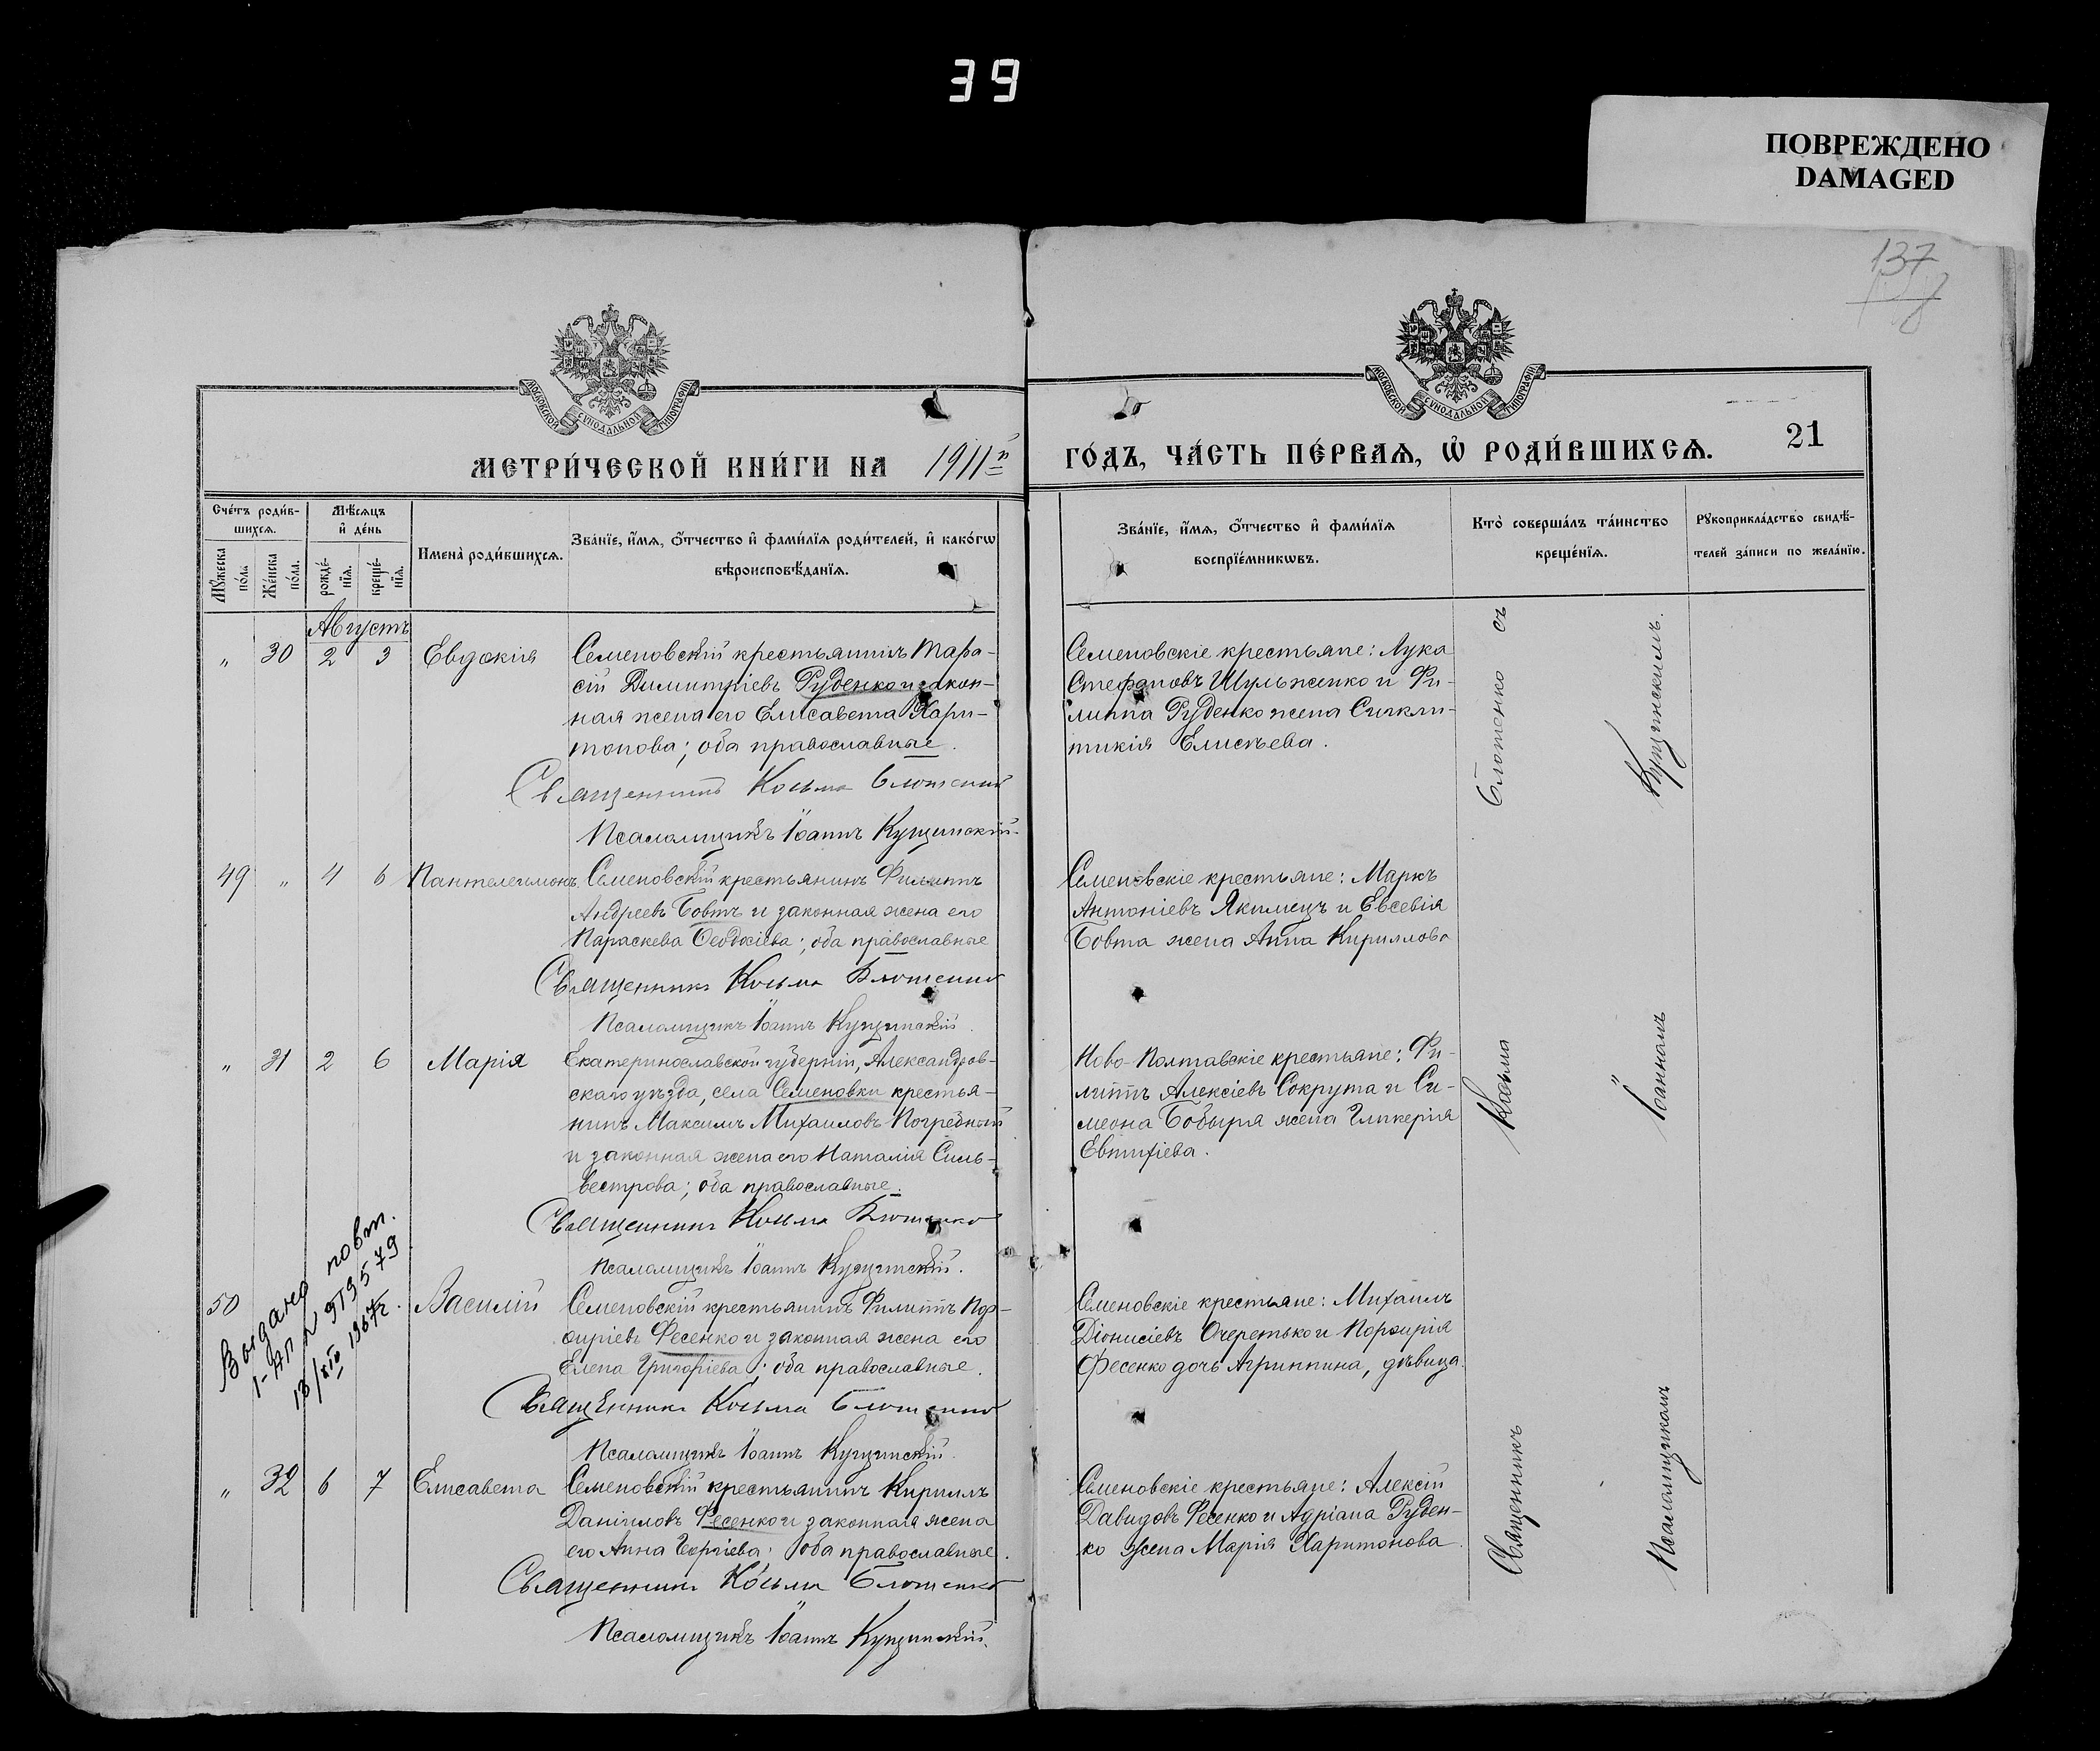 39
ПОВРЕЖДЕНО
DAMAGED
137
МОСКОВСКОЙ СѴНОДАЛЬНОЙ ТИПОГРАФІИ
МОСКОВСКОЙ СѴНОДАЛЬНОЙ ТИПОГРАФІИ
МЕТРИ́ЧЕСКОЙ КНИ́ГИ НА 1911й
ГО́ДЪ, ЧА́СТЬ ПЕ́РВАѦ, Ѡ҆ РОДИ́ВШИХСѦ.
21
Сче́тъ роди́в-
шихсѧ.
Мꙋ́жеска по́ла
Же́нска по́ла.
Мѣ́сяцъ
и҆ де́нь
рожде́-
нїѧ.
креще́-
нїѧ.
И҆мена̀ роди́вшихсѧ.
Зва́нїе, и҆́мѧ, ѻ҆́тчество и҆ фами́лїѧ роди́телей, и҆ како́гѡ
вѣроисповѣ́данїѧ.
Зва́нїе, и҆́мѧ, ѻ҆́тчество и҆ фами́лїѧ
воспрїе́мникѡвъ.
Кто̀ соверша́лъ та́инство
креще́нїѧ.
Рꙋкоприкла́дство свидѣ́-
телей за́писи по жела́нїю.
Августъ
„ 30 2 3 Евдокія
Семеновскій крестьянинъ Тара-
сій Димитріевъ Руденко и закон-
ная жена его Елисавета Хари-
тонова; оба православные.
Священникъ Косьма Блотенко
Псаломщикъ Іоаннъ Кущинскій.
Семеновскіе крестьяне: Лука
Стефановъ Шульженко и Фи-
липпа Руденко жена Синкли-
тикія Елисѣева.
49 „ 4 6 Пантелеимонъ
Семеновскій крестьянинъ Филиппъ
Андреевъ Бовтъ и законная жена его
Параскева Ѳеодосіева; оба православные
Священникъ Косьма Блотенко
Псаломщикъ Іоаннъ Кущинскій.
Семеновскіе крестьяне: Маркъ
Антоніевъ Якимецъ и Евсевія
Бовта жена Анна Кириллова
„ 31 2 6 Марія
Екатеринославской губерніи, Александров-
скаго уѣзда, села Семеновки крестья-
нинъ Максимъ Михаиловъ Погребный
и законная жена его Наталія Силь-
вестрова; оба православные.
Священникъ Косьма Блотенко
Псаломщикъ Іоаннъ Кущинскій.
Ново-Полтавскіе крестьяне: Фи-
липпъ Алексіевъ Сокрута и Си-
меона Бобыря жена Гликерія
Евтихіева.
50 Василій
Выдано повт.
18/XII 1967г.
Семеновскій крестьянинъ Филиппъ Пор-
фиріевъ Фесенко и законная жена его
Елена Григоріева; оба православные.
Священникъ Косьма Блотенко
Псаломщикъ Іоаннъ Кущинскій.
Семеновскіе крестьяне: Михаилъ
Діонисіевъ Очеретько и Порфирія
Фесенко дочь Агриппина, дѣвица.
„ 32 6 7 Елисавета
Семеновскій крестьянинъ Кириллъ
Даніиловъ Фесенко и законная жена
его Анна Георгіева; оба православные.
Священникъ Косьма Блотенко
Псаломщикъ Іоаннъ Кущинскій.
Семеновскіе крестьяне: Алексій
Давидовъ Фесенко и Адріана Руден-
ко жена Марія Харитонова.
Священникъ Косьма Блотенко съ
Псаломщикомъ Іоанномъ Кущинскимъ.